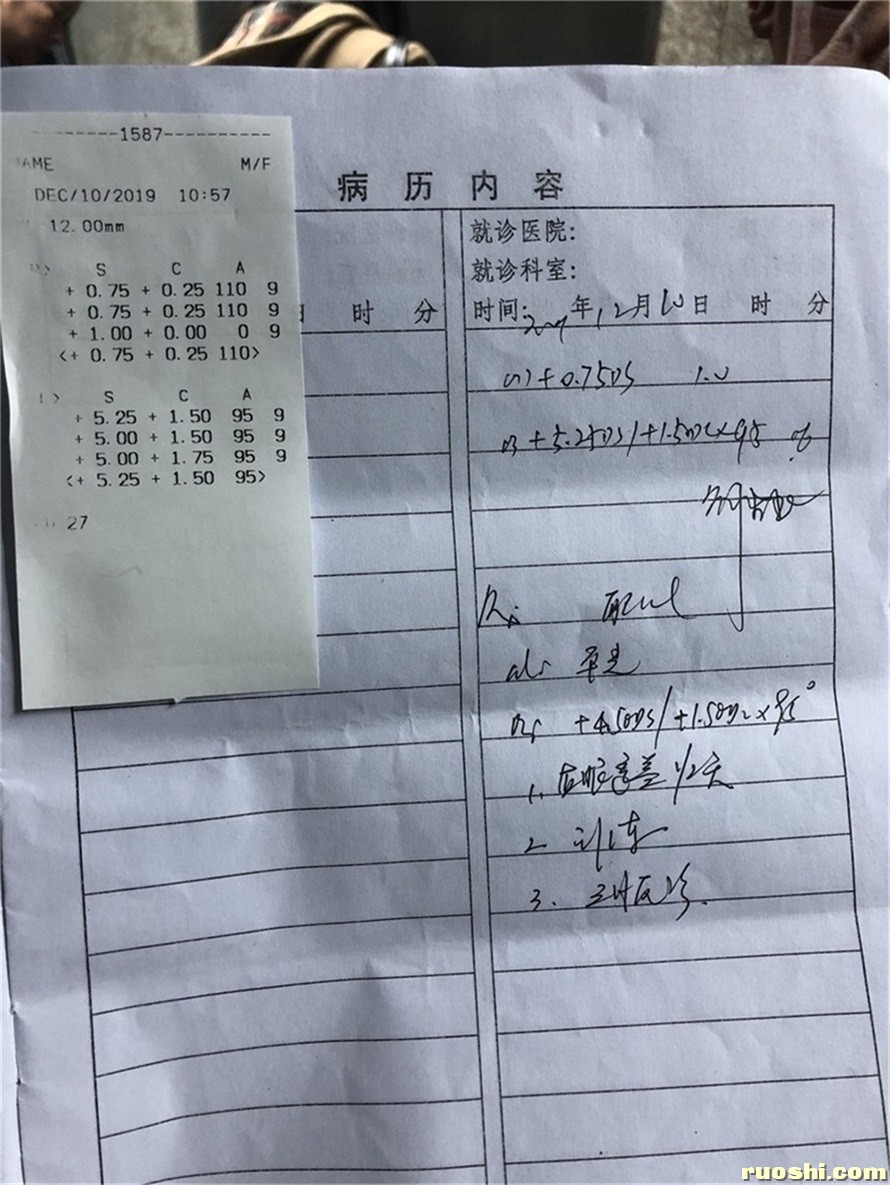 1587
AME M/F
DEC/10/2019 10:57
12.00mm
S C A
+ 0.75 + 0.25 110 9
+ 0.75 + 0.25 110 9
+ 1.00 + 0.00 0 9
<+ 0.75 + 0.25 110>
S C A
+ 5.25 + 1.50 95 9
+ 5.00 + 1.50 95 9
+ 5.00 + 1.75 95 9
<+ 5.25 + 1.50 95>
27
病历内容
时 分
就诊医院:
就诊科室:
时间: 年12月10日 时 分
+0.75DS 1.0
+5.25DS/+1.50DC×95
配
平光
+4.50DS/+1.50DC×95°
1. 右眼遮盖 1/2天
2 训练
3. 三月复诊.
ruoshi.com